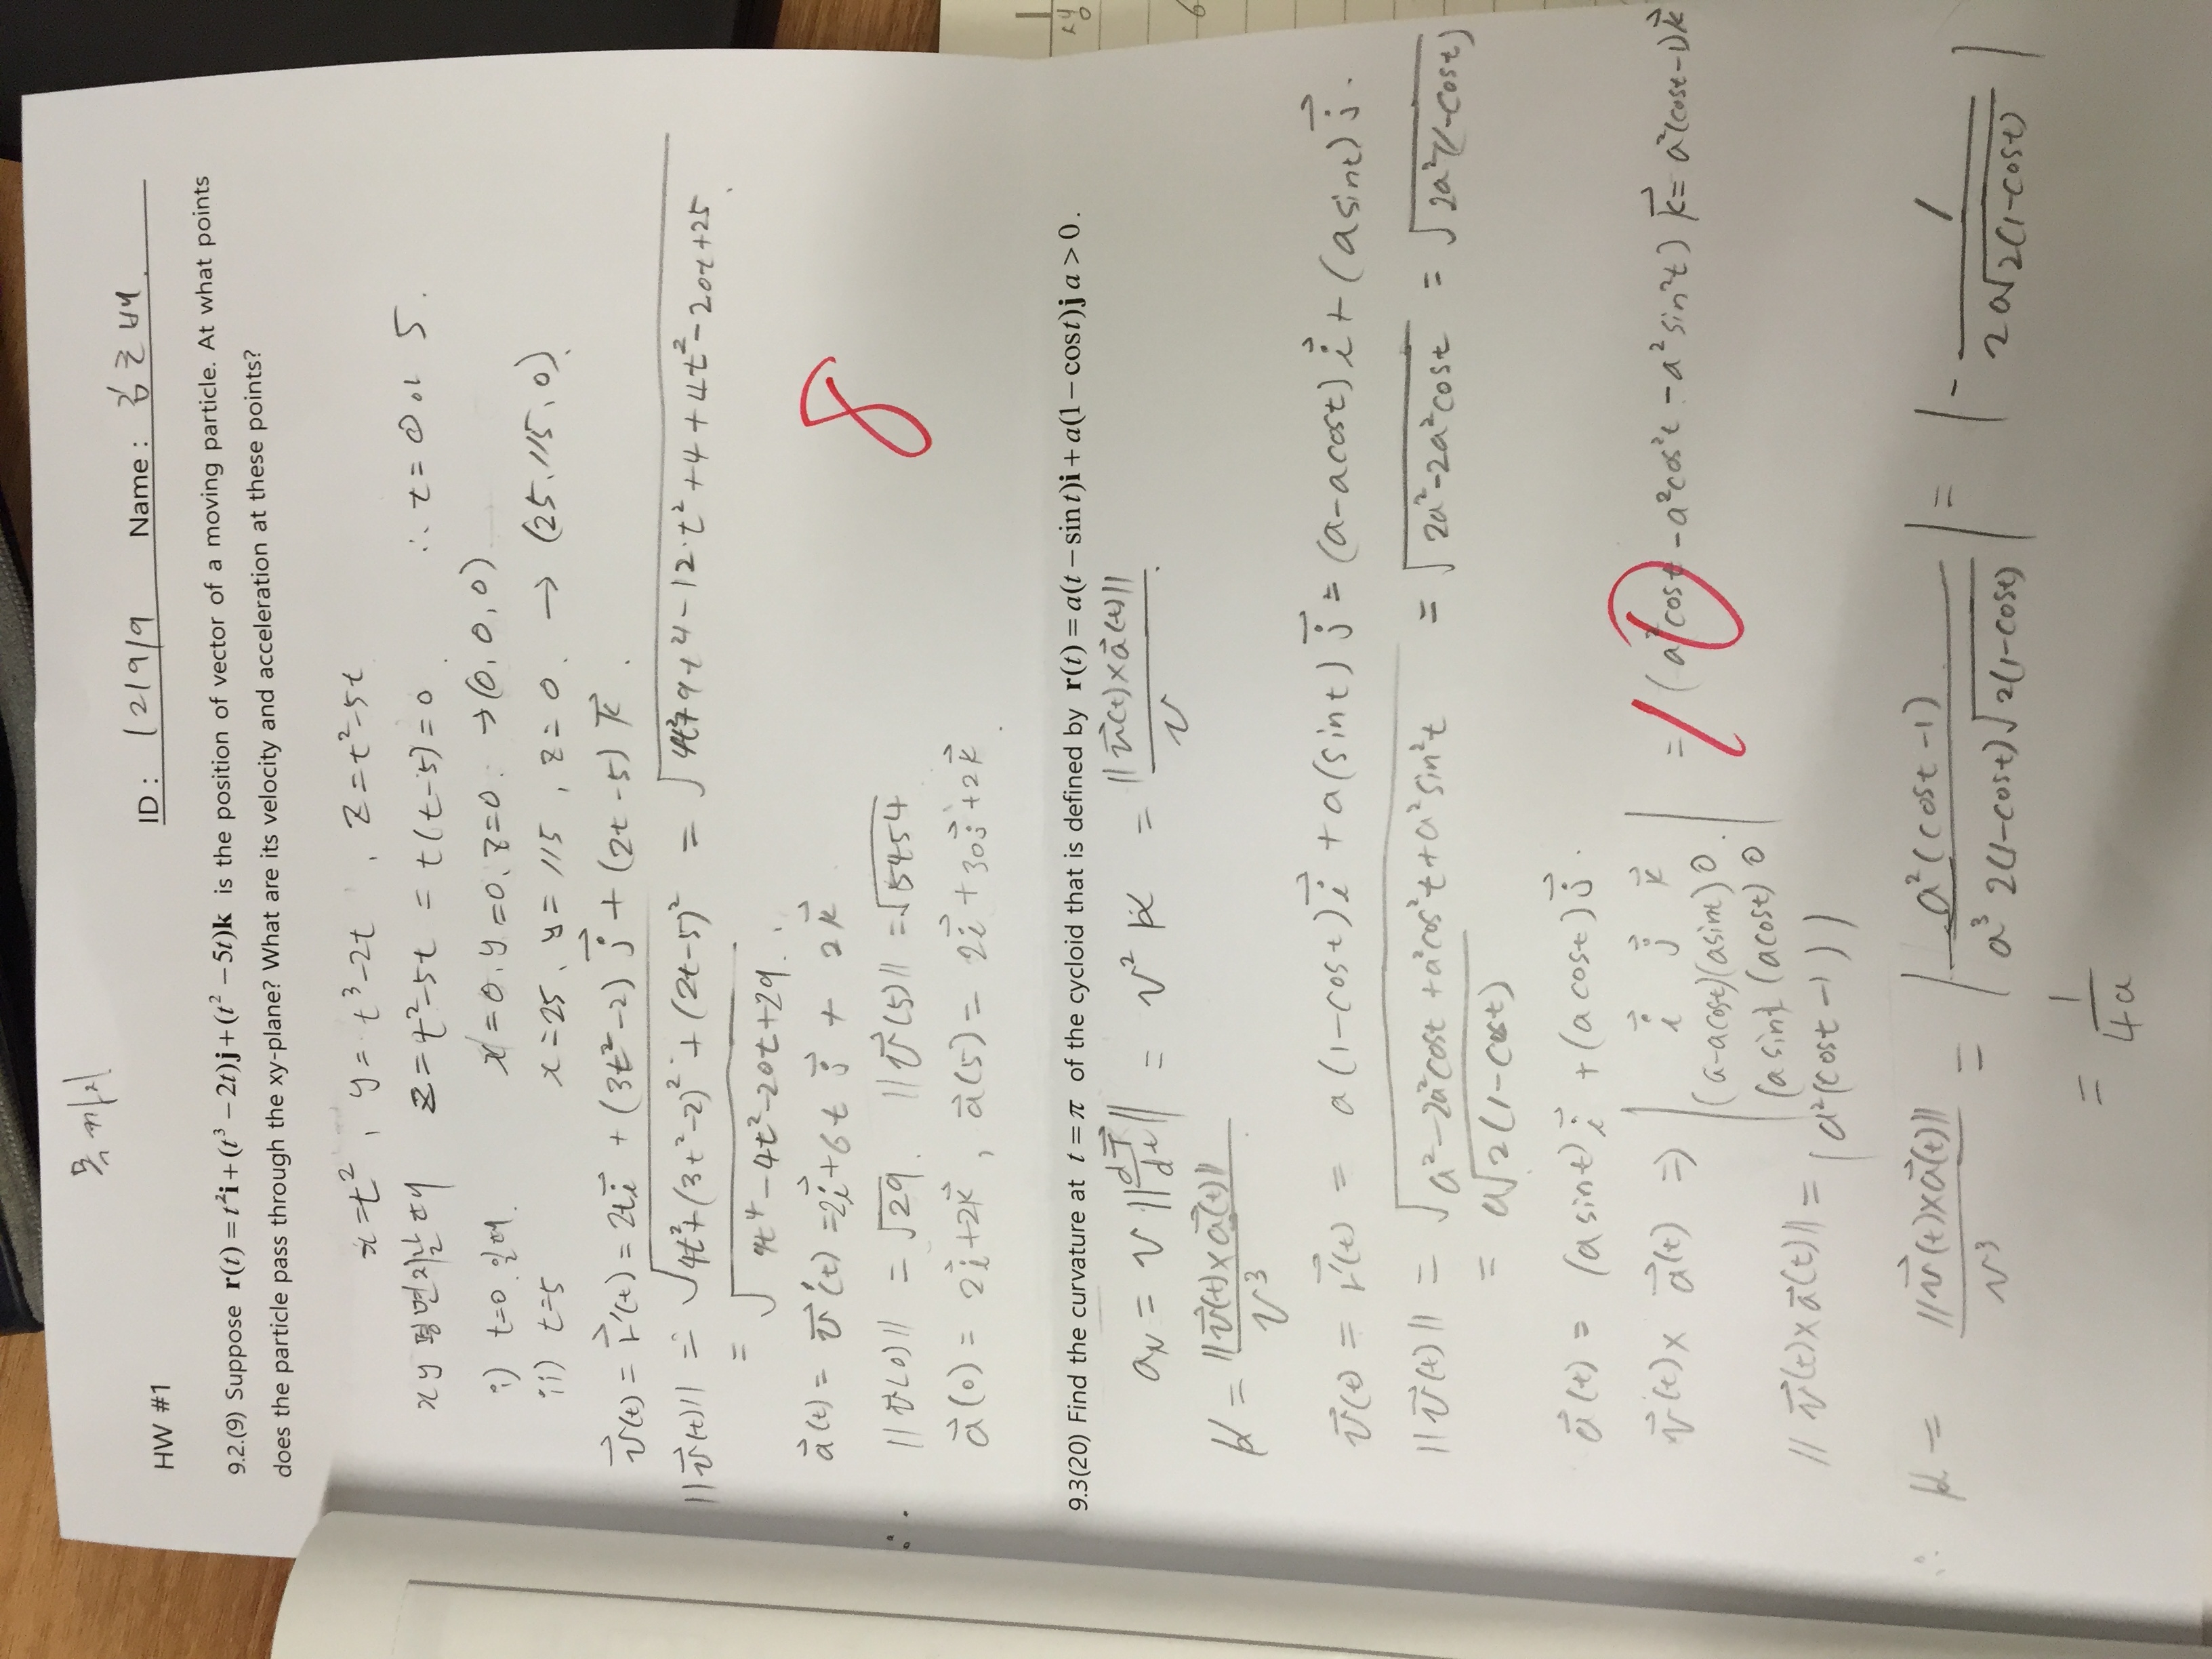 목까지
HW #1
ID : 121919 Name : 김근배
9.2.(9) Suppose r(t) = t²i + (t³ − 2t)j + (t² − 5t)k is the position of vector of a moving particle. At what points
does the particle pass through the xy-plane? What are its velocity and acceleration at these points?
x=t², y= t³-2t, z=t²-5t
xy평면지날때 z=t²-5t = t(t-5)=0 ∴ t= 0 or 5.
i) t=0 일때. x=0, y=0, z=0. → (0, 0, 0)
ii) t=5 x=25, y= 115, z=0. → (25, 115, 0).
v⃗(t) = r⃗'(t) = 2ti⃗ + (3t²-2) j⃗ + (2t-5) k⃗.
||v⃗(t)|| = √(4t²+(3t²-2)²+(2t-5)²) = √(4t²+9t⁴-12t²+4+4t²-20t+25).
= √(9t⁴-4t²-20t+29).
a⃗(t) = v⃗'(t) = 2i⃗+6t j⃗ + 2k⃗
∴ ||v⃗(0)|| = √29. ||v⃗(5)|| = √5454
8
a⃗(0) = 2i⃗+2k⃗, a⃗(5) = 2i⃗+30j⃗+2k⃗.
9.3(20) Find the curvature at t = π of the cycloid that is defined by r(t) = a(t − sin t)i + a(1 − cos t)j a > 0.
a_N = v ||dT⃗/dt|| = v² κ = ||v⃗(t)×a⃗(t)||/v.
κ = ||v⃗(t)×a⃗(t)||/v³.
v⃗(t) = r⃗'(t) = a(1-cost)i⃗ + a(sint)j⃗ = (a-acost)i⃗ + (asint)j⃗.
||v⃗(t)|| = √(a²-2a²cost+a²cos²t+a²sin²t) = √(2a²-2a²cost) = √(2a²(1-cost))
= a√(2(1-cost))
a⃗(t) = (asint)i⃗ + (acost)j⃗.
v⃗(t)× a⃗(t) ⇒ | i⃗ j⃗ k⃗
(a-acost)(asint) 0
(asint) (acost) 0 | = (a²cost-a²cos²t-a²sin²t) k⃗ = a²(cost-1)k⃗
10
||v⃗(t)×a⃗(t)|| = |a²(cost-1)|
∴ κ = ||v⃗(t)×a⃗(t)||/v³ = |a²(cost-1)/(a³ 2(1-cost)√(2(1-cost)))| = |-1/(2a√(2(1-cost)))|
= 1/4a